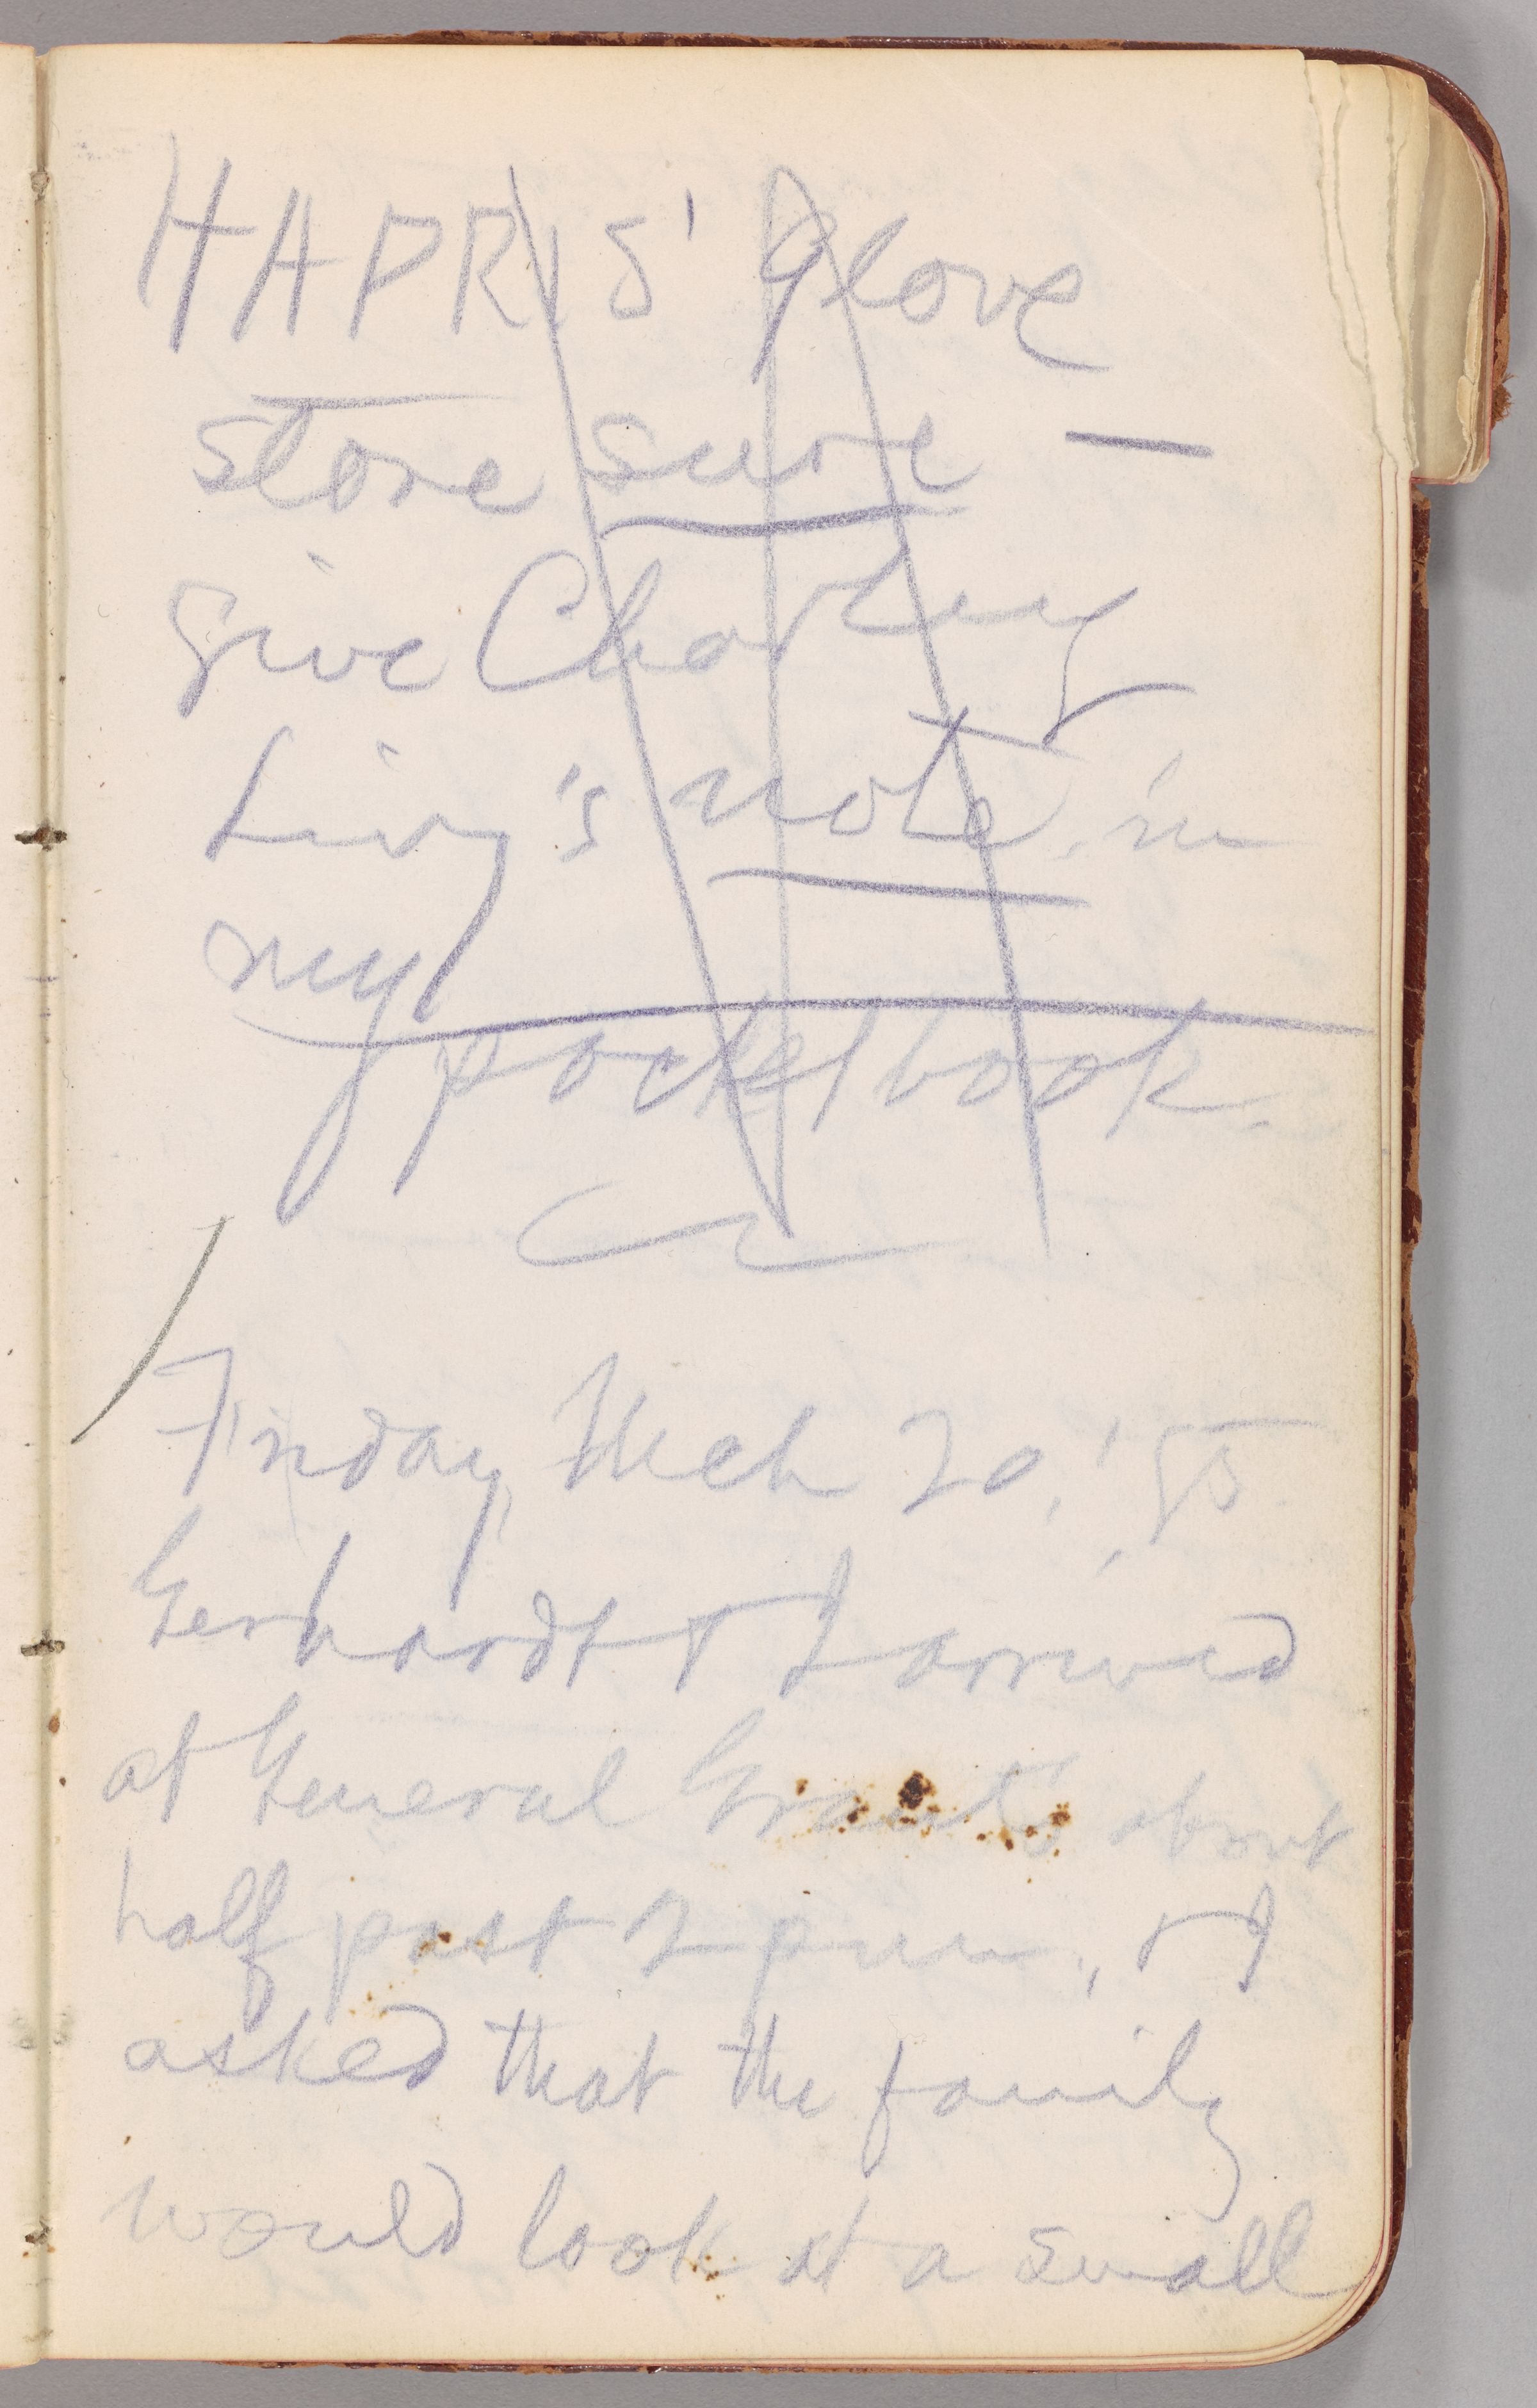 HARRIS' glove
store sure —
give Charley
Livy's note, in
my
pocketbook.
Friday, Mch 20, '85.
Gerhardt & I arrived
at General Grant's about
half past 2 p.m., & I
asked that the family
would look at a small